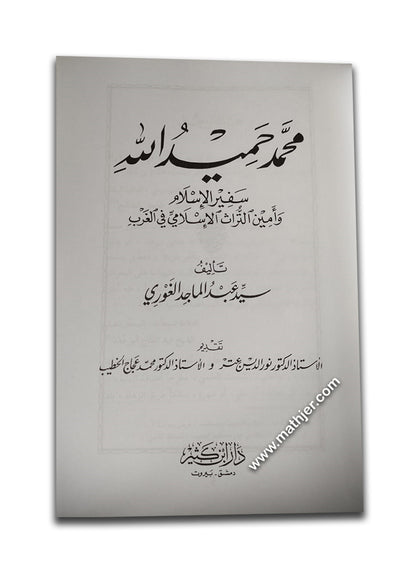 محمَّد حَميدُ اللهِ
سَفِيرُ الإِسْلَامِ
وَأَمِينُ التُّرَاثِ الإِسْلَامِيِّ فِي الغَرْبِ
تَأْلِيفُ
سيِّد عَبْد الماجِد الغَوْرِي
تَقْدِيم
الأستاذ الدكتور نور الدين عتر و الأستاذ الدكتور محمد عجاج الخطيب
دَارُ ابْنِ كَثِيْر
دمشق - بيروت
www.mathjer.com